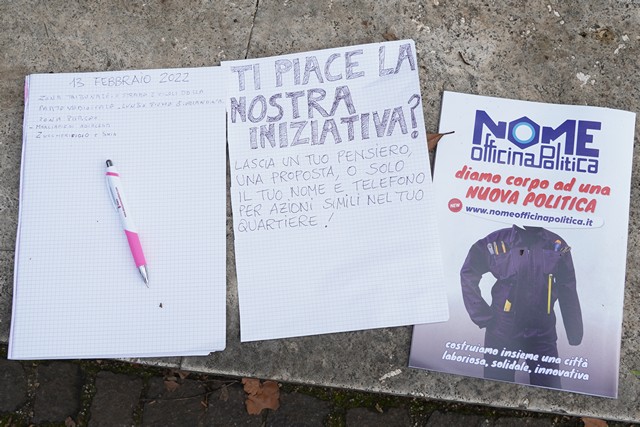 13 FEBBRAIO 2022
TI PIACE LA
NOSTRA
INIZIATIVA?
LASCIA UN TUO PENSIERO,
UNA PROPOSTA, O SOLO
IL TUO NOME E TELEFONO
PER AZIONI SIMILI NEL TUO
QUARTIERE!
NOME
officinaPolitica
diamo corpo ad una
NUOVA POLITICA
NEW www.nomeofficinapolitica.it
costruiamo insieme una città
laboriosa, solidale, innovativa